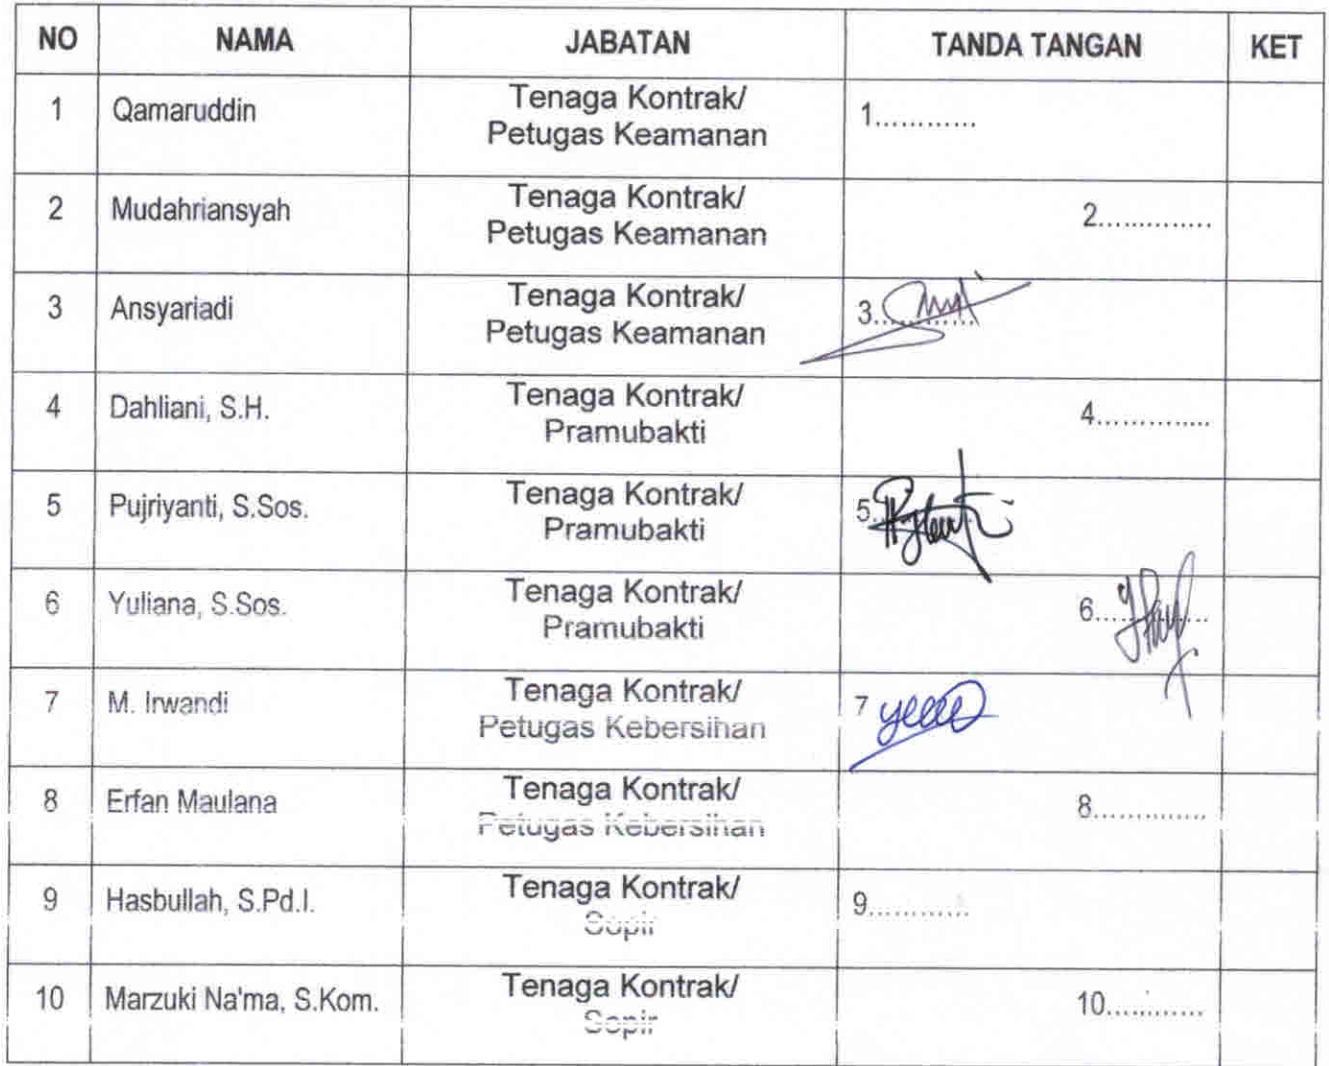 NO NAMA JABATAN TANDA TANGAN KET
1 Qamaruddin Tenaga Kontrak/ 1............
Petugas Keamanan
2 Mudahriansyah Tenaga Kontrak/ 2..............
Petugas Keamanan
3 Ansyariadi Tenaga Kontrak/ 3.............
Petugas Keamanan
4 Dahliani, S.H. Tenaga Kontrak/ 4..............
Pramubakti
5 Pujriyanti, S.Sos. Tenaga Kontrak/ 5.
Pramubakti
6 Yuliana, S.Sos. Tenaga Kontrak/ 6..............
Pramubakti
7 M. Irwandi Tenaga Kontrak/ 7
Petugas Kebersihan
8 Erfan Maulana Tenaga Kontrak/ 8..............
Petugas Kebersihan
9 Hasbullah, S.Pd.I. Tenaga Kontrak/ 9............
Sopir
10 Marzuki Na'ma, S.Kom. Tenaga Kontrak/ 10............
Sopir